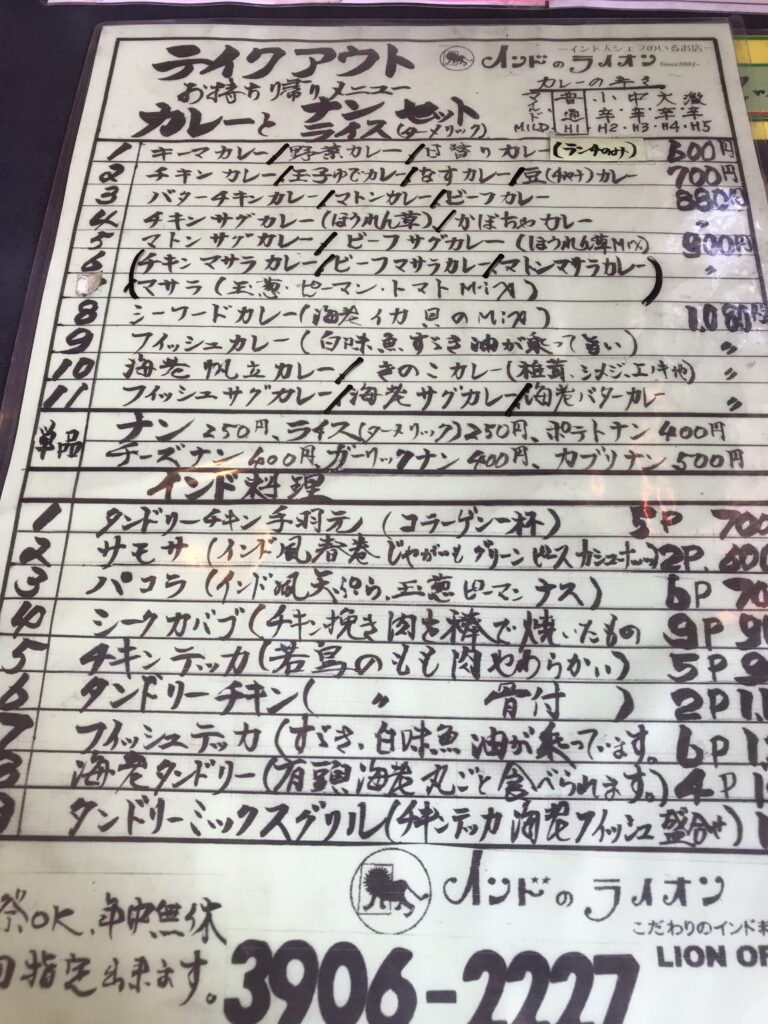 テイクアウト
ーインド人シェフのいるお店ー
インドのライオン
Since2001~
お持ち帰りメニュー
カレーの辛さ
カレーと ナン ライス(ターメリック) セット
マイルド 普通 小辛 中辛 大辛 激辛
MILD H1 H2・H3・H4・H5
1 キーマカレー/野菜カレー/日替りカレー(ランチのみ) 600円
2 チキンカレー/玉子ゆでカレー/なすカレー/豆(チャナ)カレー 700円
3 バターチキンカレー/マトンカレー/ビーフカレー 880円
4 チキンサグカレー(ほうれん草)/かぼちゃカレー 〃
5 マトンサグカレー/ビーフサグカレー(ほうれん草Mix) 900円
6 (チキンマサラカレー/ビーフマサラカレー/マトンマサラカレー) 〃
マサラ(玉葱・ピーマン・トマトMiX)
8 シーフードカレー(海老イカ貝のMiX) 1,080円
9 フイッシュカレー(白味魚すゞき油が乗って旨い) 〃
10 海老帆立カレー/きのこカレー(椎茸、シメジ、エノキ他) 〃
11 フイッシュサグカレー/海老サグカレー/海老バターカレー 〃
単品 ナン250円、ライス(ターメリック)250円、ポテトナン400円
チーズナン400円、ガーリックナン400円、カブリナン500円
インド料理
1 タンドリーチキン手羽元(コラーゲン一杯) 5P 700
2 サモサ(インド風春巻じゃがいもグリンピースカシューナッツ) 2P. 600
3 パコラ(インド風天ぷら、玉葱ピーマンナス) 6P 70
4 シークカバブ(チキン挽き肉を棒で焼いたもの 9P 9
5 チキンテッカ(若鳥のもも肉やわらかい) 5P 9
6 タンドリーチキン(〃 骨付) 2P 1.1
7 フイッシュテッカ(すゞき、白味魚油が乗っています。 6P 1
8 海老タンドリー(有頭海老丸ごと食べられます。) 4P 1
9 タンドリーミックスグリル(チキンテッカ海老フイッシュ盛合せ) 1
インドのライオン
祭OK、年中無休
こだわりのインド料
指定出来ます。
LION OF
3906-2227